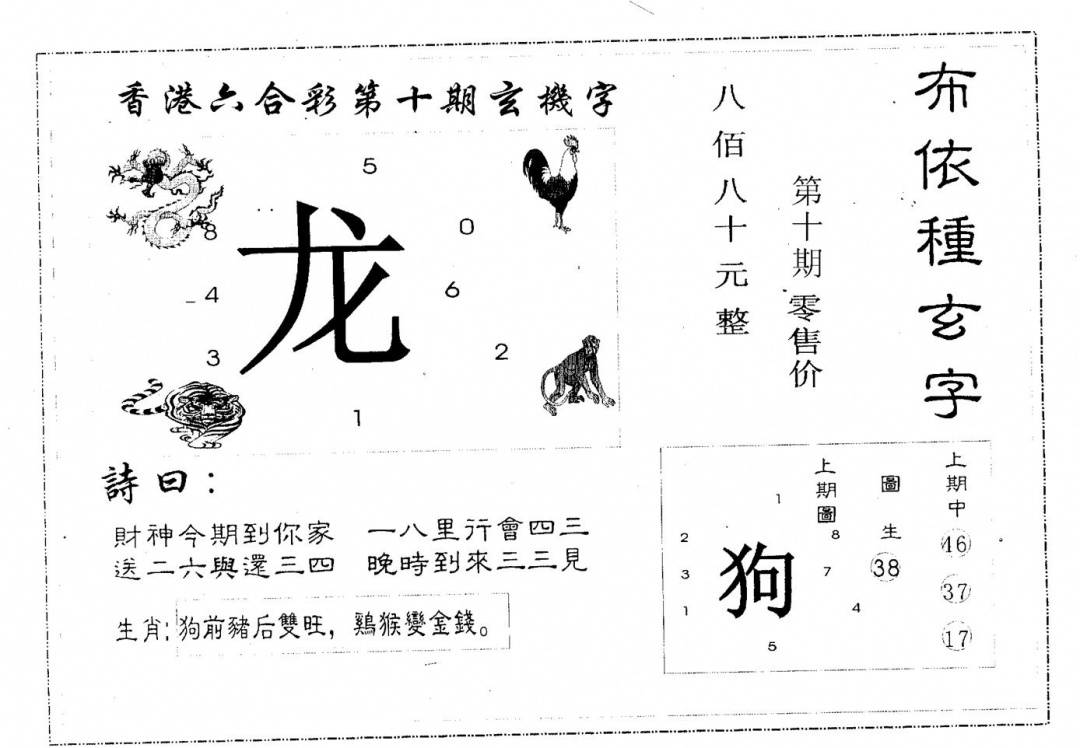 香港六合彩第十期玄機字
布依種玄字
第十期零售价
八佰八十元整
5
8
0
龙
4
6
3
2
1
詩曰：
財神今期到你家 一八里行會四三
送二六與還三四 晚時到來三三見
生肖：狗前豬后雙旺，鷄猴變金錢。
上期中
46
37
17
圖生
38
上期圖
1
2
8
3
狗
7
1
4
5